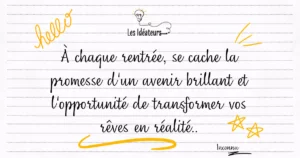 hello
Les Idéateurs
À chaque rentrée, se cache la
promesse d'un avenir brillant et
l'opportunité de transformer vos
rêves en réalité..
Inconnu